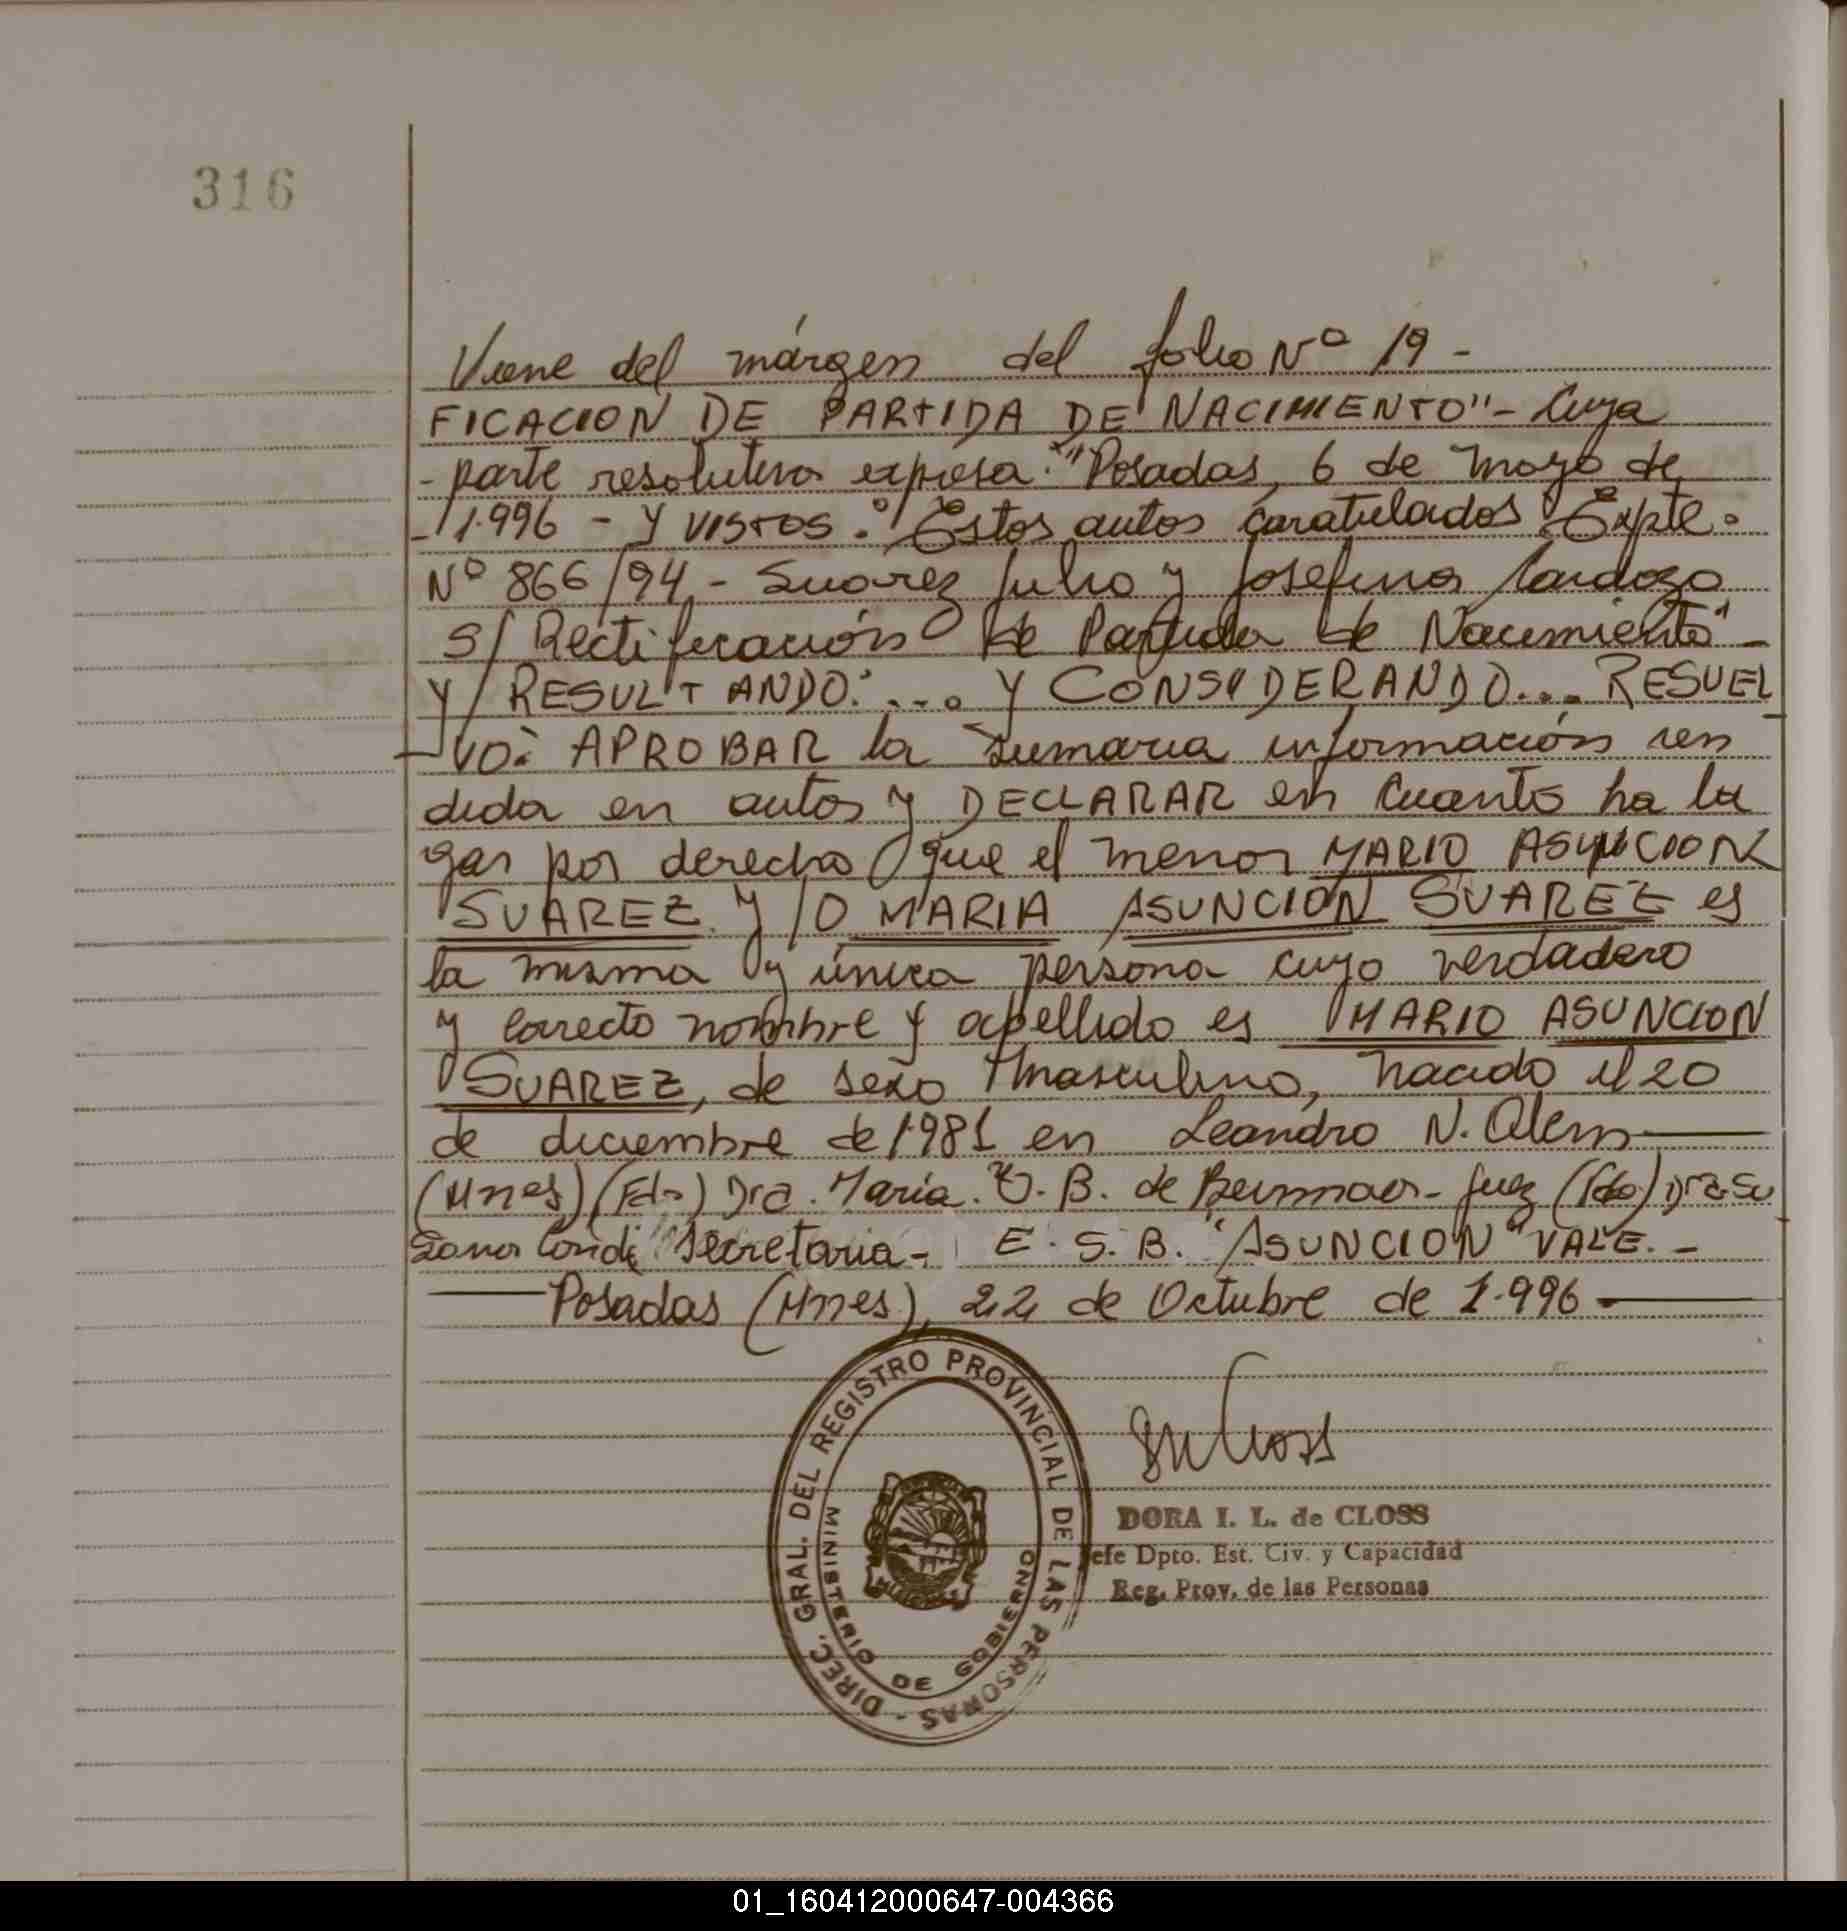 316
Viene del márgen del folio Nº 19 -
FICACION DE PARTIDA DE NACIMIENTO" - Cuya
- parte resolutiva expresa: "Posadas, 6 de mayo de
- 1.996 - Y VISTOS: Estos autos caratulados "Expte.
Nº 866/94 - Suarez Julio y Josefina Cardozo
S/ Rectificación de Partida de Nacimiento" -
Y RESULTANDO: .... Y CONSIDERANDO... RESUEL
VO: APROBAR la sumaria información ren
dida en autos y DECLARAR en cuanto ha lu
gar por derecho que el menor MARIO ASUNCION
SUAREZ Y/O MARIA ASUNCION SUAREZ es
la misma y única persona cuyo verdadero
y correcto nombre y apellido es MARIO ASUNCION
SUAREZ, de sexo masculino, nacido el 20
de diciembre de 1.981 en Leandro N. Alem
(Mnes) (Fdo) Dra. María. B. de - Juez (Fdo) Dra Su
sana Conde Secretaria - E. S. B. "ASUNCION" VALE. -
Posadas (Mnes), 22 de Octubre de 1.996.
DIREC. GRAL. DEL REGISTRO PROVINCIAL DE LAS PERSONAS -
MINISTERIO DE GOBIERNO
DORA I. L. de CLOSS
Jefe Dpto. Est. Civ. y Capacidad
Reg. Prov. de las Personas
01_160412000647-004366